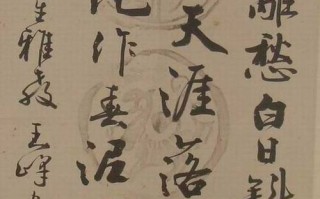 離愁白日斜
天涯落
化作春泥
生雅教 王峰